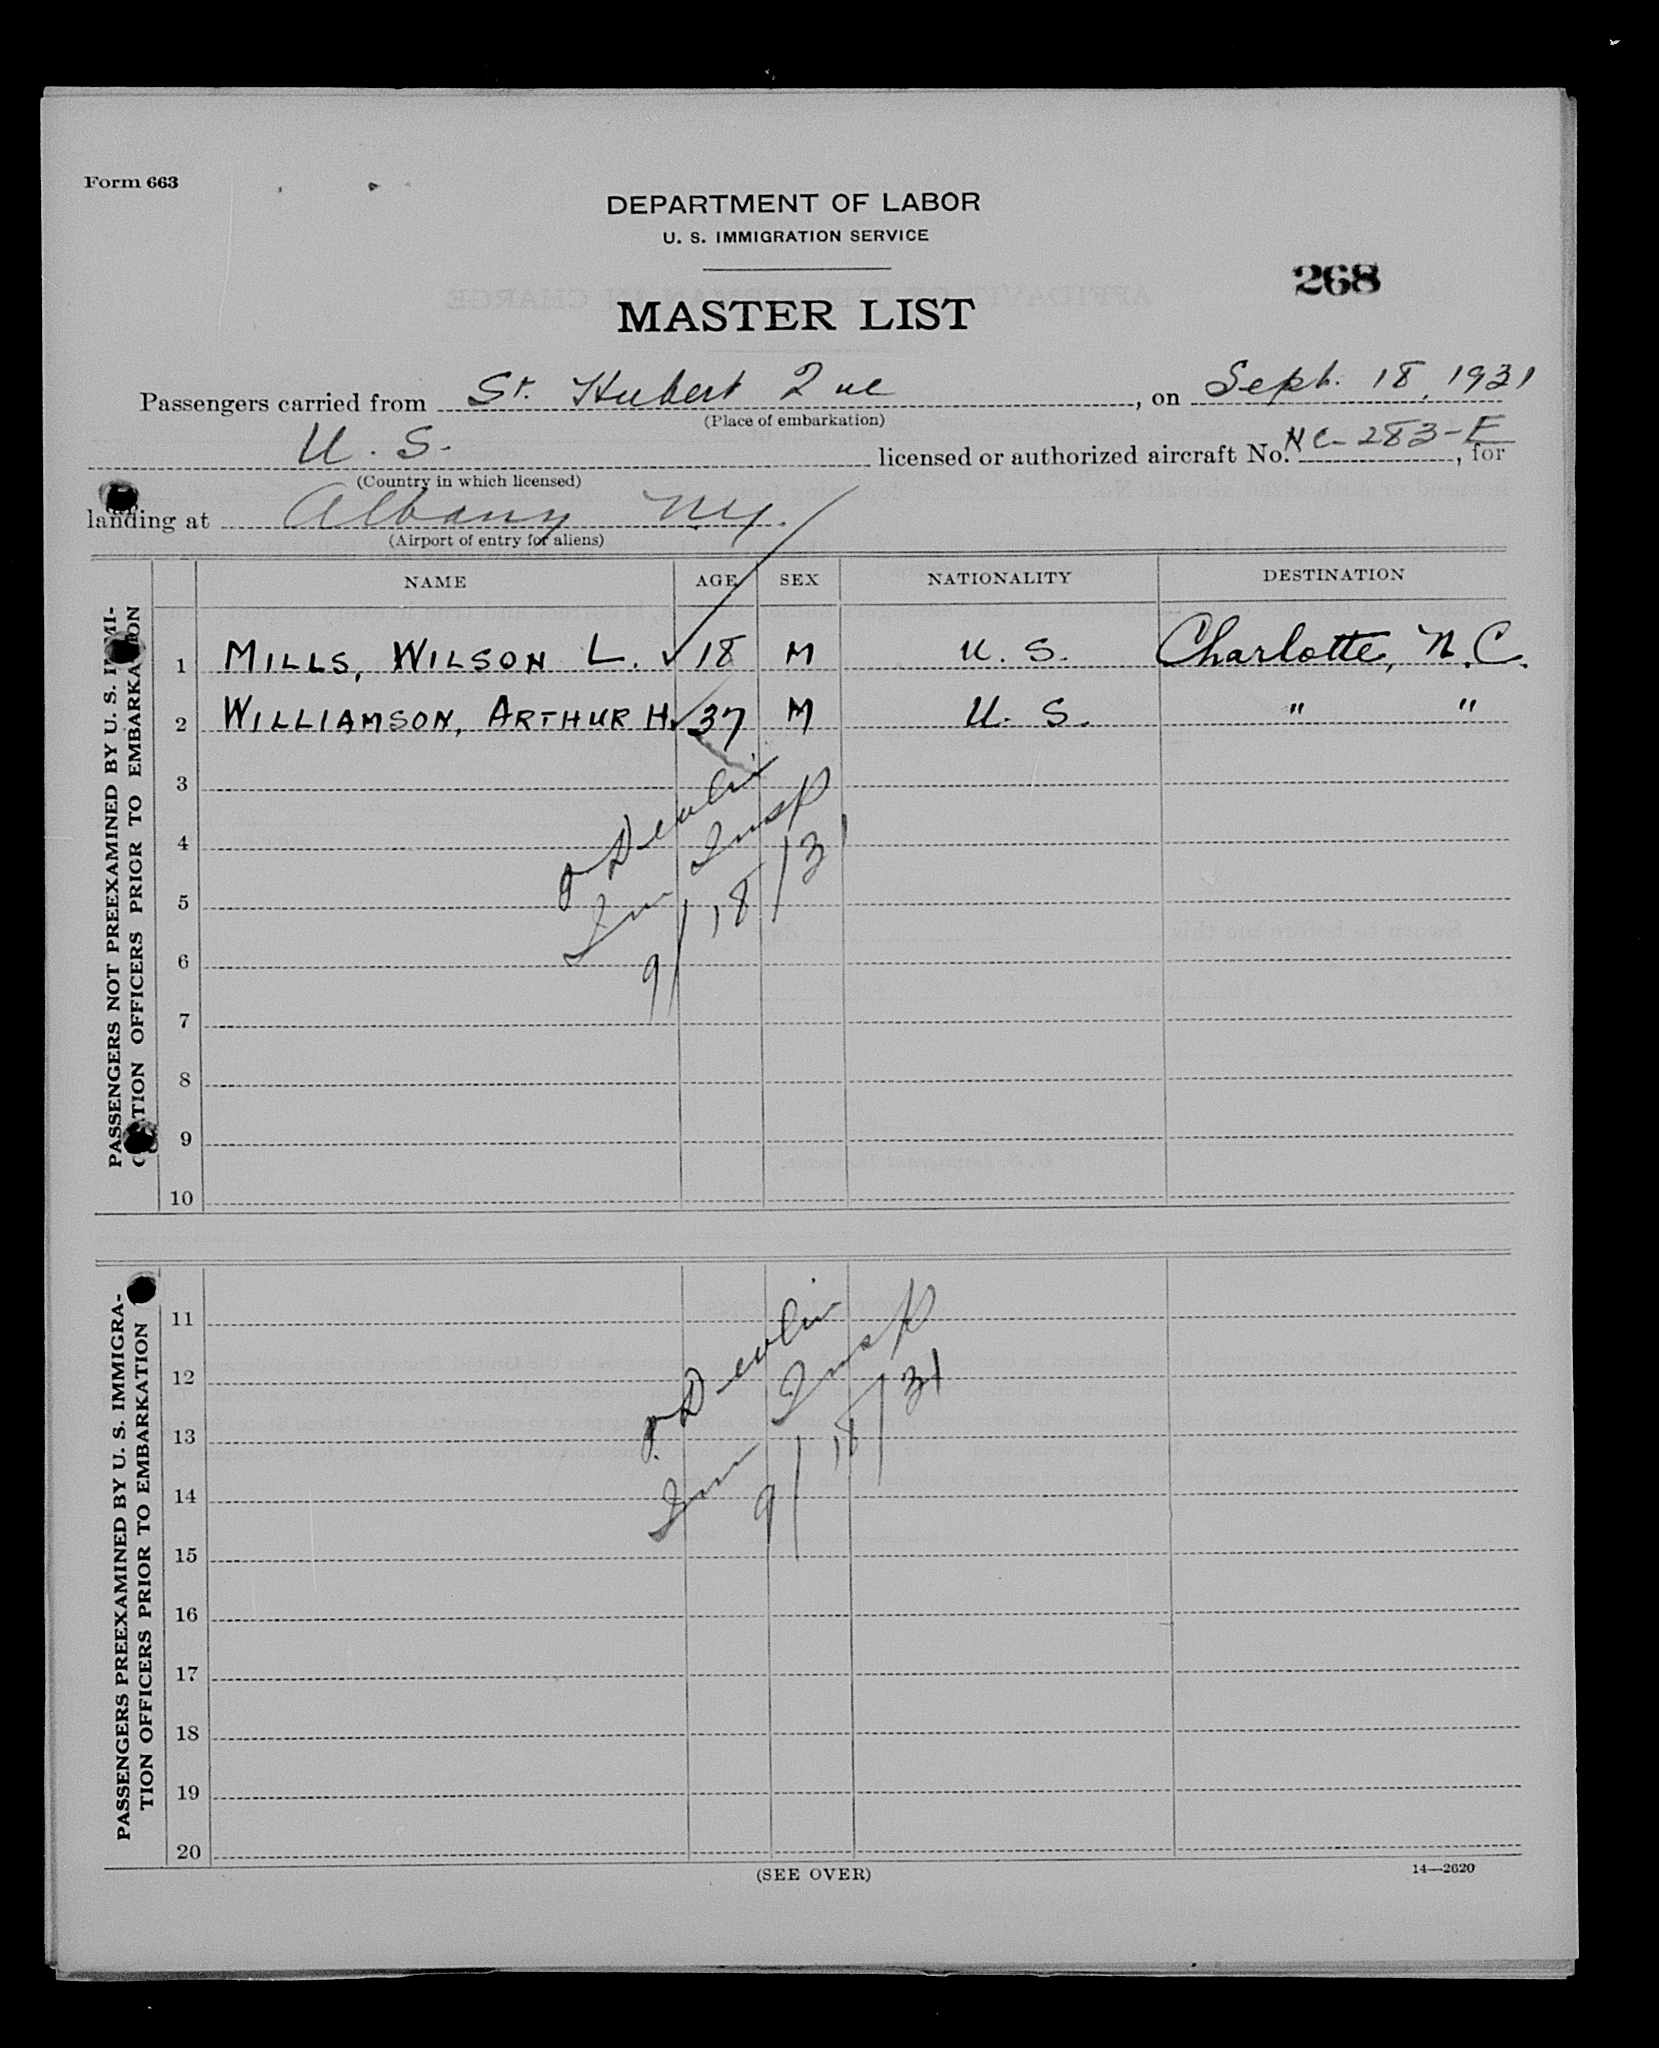 Form 663
DEPARTMENT OF LABOR
U. S. IMMIGRATION SERVICE
268
MASTER LIST
Passengers carried from St. Hubert Que, on Sept. 18, 1931
(Place of embarkation)
U. S. licensed or authorized aircraft No. NC-283-E, for
(Country in which licensed)
landing at Albany NY.
(Airport of entry for aliens)
NAME AGE SEX NATIONALITY DESTINATION
PASSENGERS NOT PREEXAMINED BY U. S. IMMI-
GRATION OFFICERS PRIOR TO EMBARKATION
1 MILLS, WILSON L. ✓ 18 M U. S. Charlotte, N.C.
2 WILLIAMSON, ARTHUR H. ✓ 37 M U. S. " "
3
4
5
6
7
8
9
10
Devlin
Imm Insp
9/18/31
PASSENGERS PREEXAMINED BY U. S. IMMIGRA-
TION OFFICERS PRIOR TO EMBARKATION
11
12
13
14
15
16
17
18
19
20
Devlin
Imm Insp
9/18/31
(SEE OVER)
14—2620